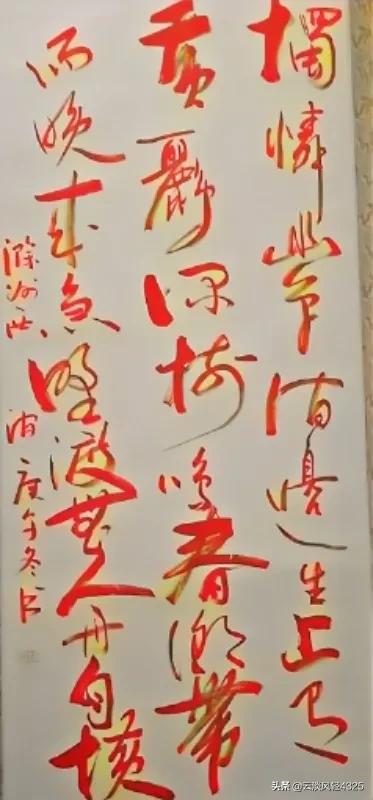 獨憐幽草澗邊生上有
黃鸝深樹鳴春潮帶
雨晚來急野渡無人舟自橫
滁州西澗 庚午冬书
头条 @云淡风轻4325